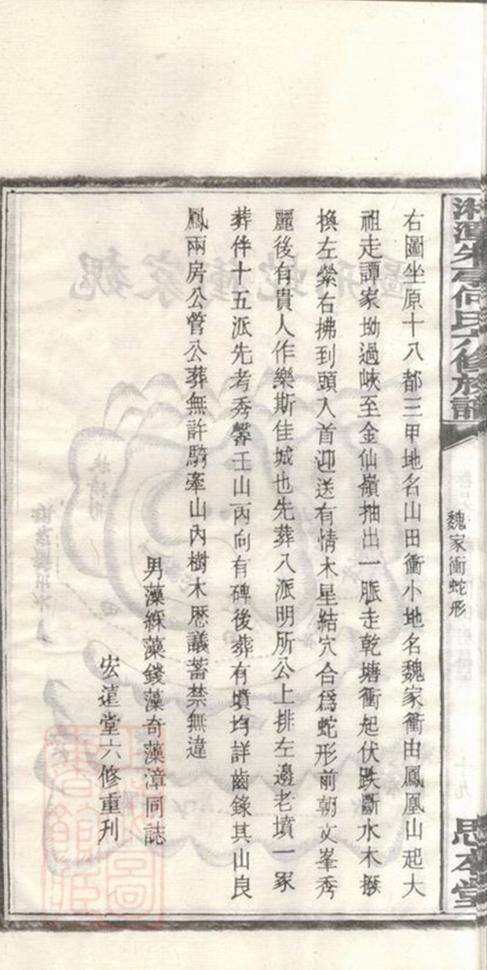 湘潭朱亭何氏六修族譜
魏家衝蛇形
思本堂
右圖坐原十八都三甲地名山田衝小地名魏家衝由鳳凰山起大
祖走譚家坳過峽至金仙嶺抽出一脈走乾塘衝起伏跌斷水木
換左縈右拂到頭人首迎送有情木星結穴合爲蛇形前朝文峯秀
麗後有貴人作樂斯佳城也先葬八派明所公上排左邊老墳一冢
葬伴十五派先考秀馨壬山丙向有碑後葬有墳均詳齒錄其山良
鳳兩房公管公葬無許騎牽山內樹木歷議蓄禁無違
男藻錢藻奇藻漳同誌
宏蓮堂六修重刊